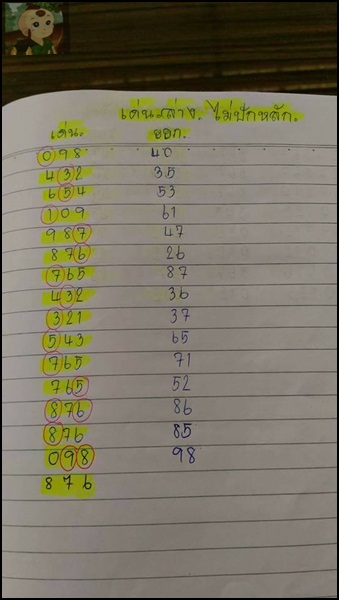 เด่นล่าง. ไม่ปักหลัก.
เด่น. ออก.
098 40
432 35
654 53
109 61
987 47
876 26
765 87
432 36
321 37
543 65
765 71
765 52
876 86
876 85
098 98
876